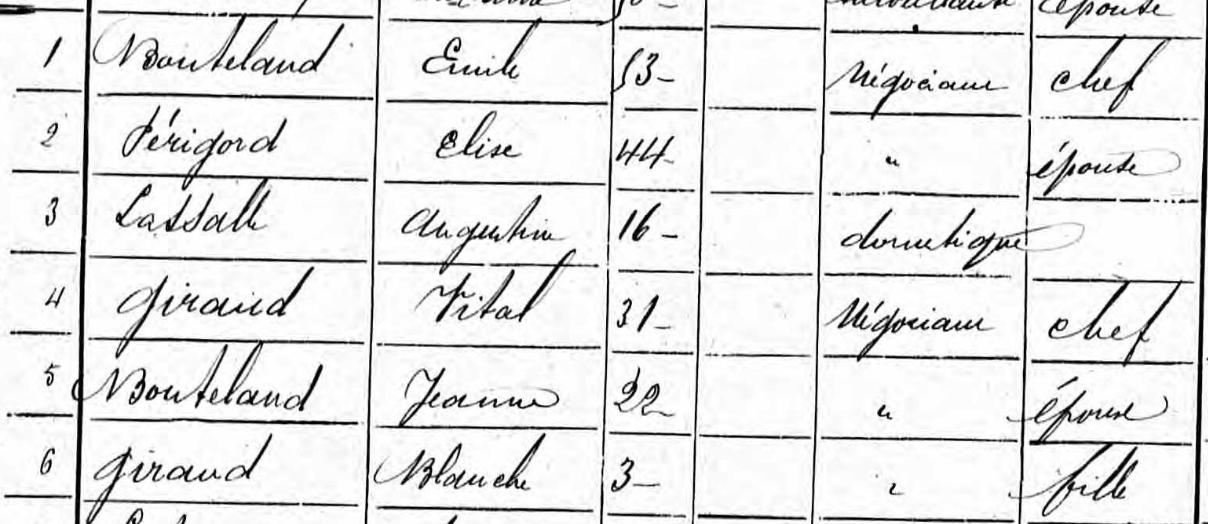 épouse
1 Bouteland Emile 53 - Négociant chef
2 Périgord Elise 44 - " épouse
3 Lassalle Augustine 16 - domestique
4 Giraud Vital 31 - Négociant chef
5 Bouteland Jeanne 22 - " épouse
6 Giraud Blanche 3 - " fille